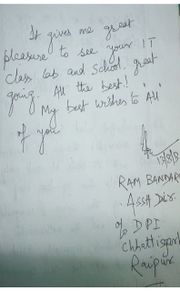 It gives me great
pleasure to see your IT
Class lab and School! great
going. All the best!
My best wishes to "All"
of you
RAM BANDARI
Asst Dir.
o/o DPI
Chhattisgarh
Raipur